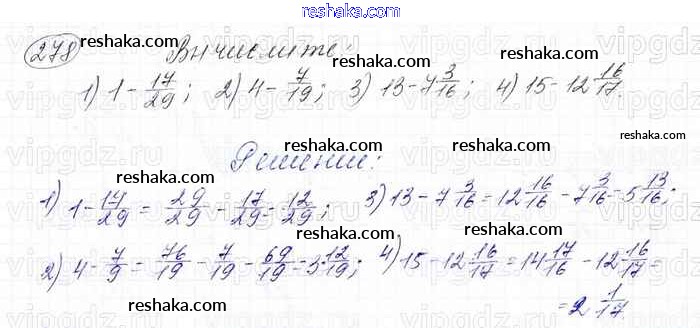 reshaka.com
278 reshaka.com Вычислите: reshaka.com
1) 1 - 17/29; 2) 4 - 7/19; 3) 13 - 7 3/16; 4) 15 - 12 16/17.
reshaka.com
reshaka.com reshaka.com
Решение:
reshaka.com reshaka.com
1) 1 - 17/29 = 29/29 - 17/29 = 12/29; 3) 13 - 7 3/16 = 12 16/16 - 7 3/16 = 5 13/16;
reshaka.com reshaka.com
2) 4 - 7/9 = 76/19 - 7/19 = 69/19 = 3 12/19; 4) 15 - 12 16/17 = 14 17/16 - 12 16/17 =
= 2 1/17.
reshaka.com reshaka.com reshaka.com